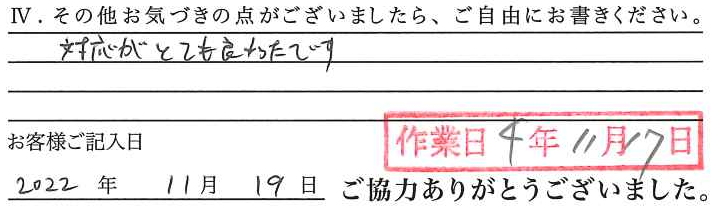 Ⅳ．その他お気づきの点がございましたら、ご自由にお書きください。
対応がとても良かったです
お客様ご記入日
作業日 4年 11月17日
2022 年 11月 19 日 ご協力ありがとうございました。